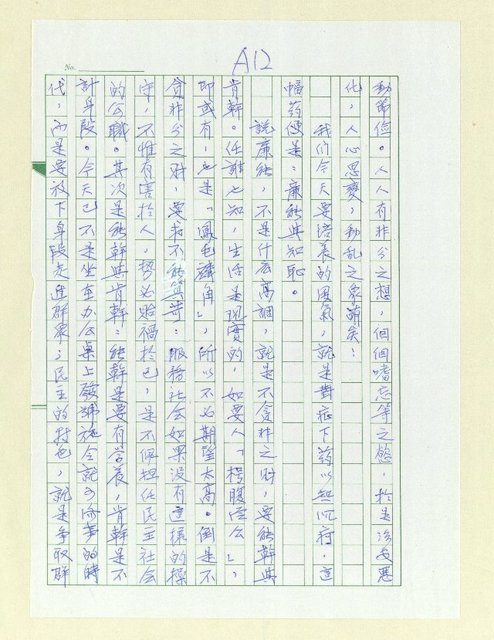 A12
No.
動歸儉。人人有非分之想，個個嗜忘等之慾，於是淫丟惡
化，人心思變，動亂之象萌矣！
我們今天要培養的風氣，就是對症下藥以起沉疴。這
幅葯便是：廉能與知恥。
說廉能，不是什么高調，就是不貪非之財，要能幹與
肯幹。任誰也知，生活是現實的，如要人「枵腹從公」，
即或有，也是「鳳毛麟角」，所以不必期望太高。倒是不
貪非分之財，要求不能算苛：服務社会如果没有這樣的操
守，不惟有害於人，勢必貽禍於己，是不佩担任民主社会
的公職。其次是能幹與肯幹：能幹是要有学養，肯幹是不
計身段。今天已不是坐在办公桌上發號施令就可治事的時
代，而是要放下身段走進群眾；民主的特色，就是爭取群